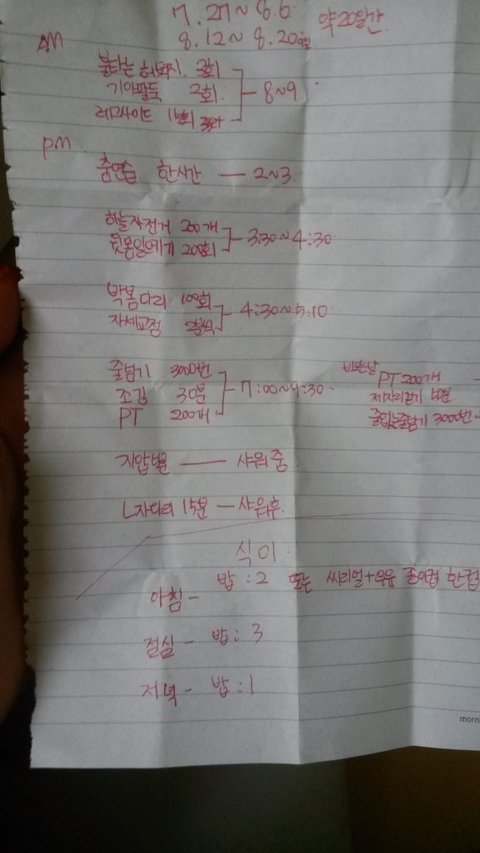 7.27~8.6 약20일간
8.12~8.20
AM
불타는 허벅지 3회
기아팔뚝 2회
8~9
레그사이드 15회
pm
춤연습 한시간 — 2~3
하늘자전거 200개
윗몸일으키기 200회
3:30~4:30
박봄다리 100회
자세교정
4:30~5:10
줄넘기 3000번
조깅 30분
PT 200개
7:00~9:30
비오는날
PT 200개
제자리걷기
줄없는줄넘기 3000번
지압볼 — 샤워중
L자다리 15분 — 샤워후
식이
아침 - 밥:2 또는 씨리얼+우유 종이컵 한컵
점심 - 밥:3
저녁 - 밥:1